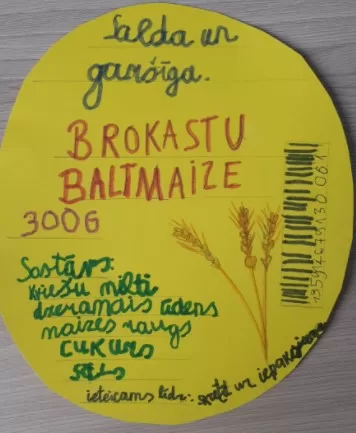 Salda un
garšīga.
BROKASTU
BALTMAIZE
300G
Sastāvs:
kviešu milti
dzeramais ūdens
maizes raugs
CUKURS
SĀLS
ieteicams līdz: skatīt uz iepakojuma